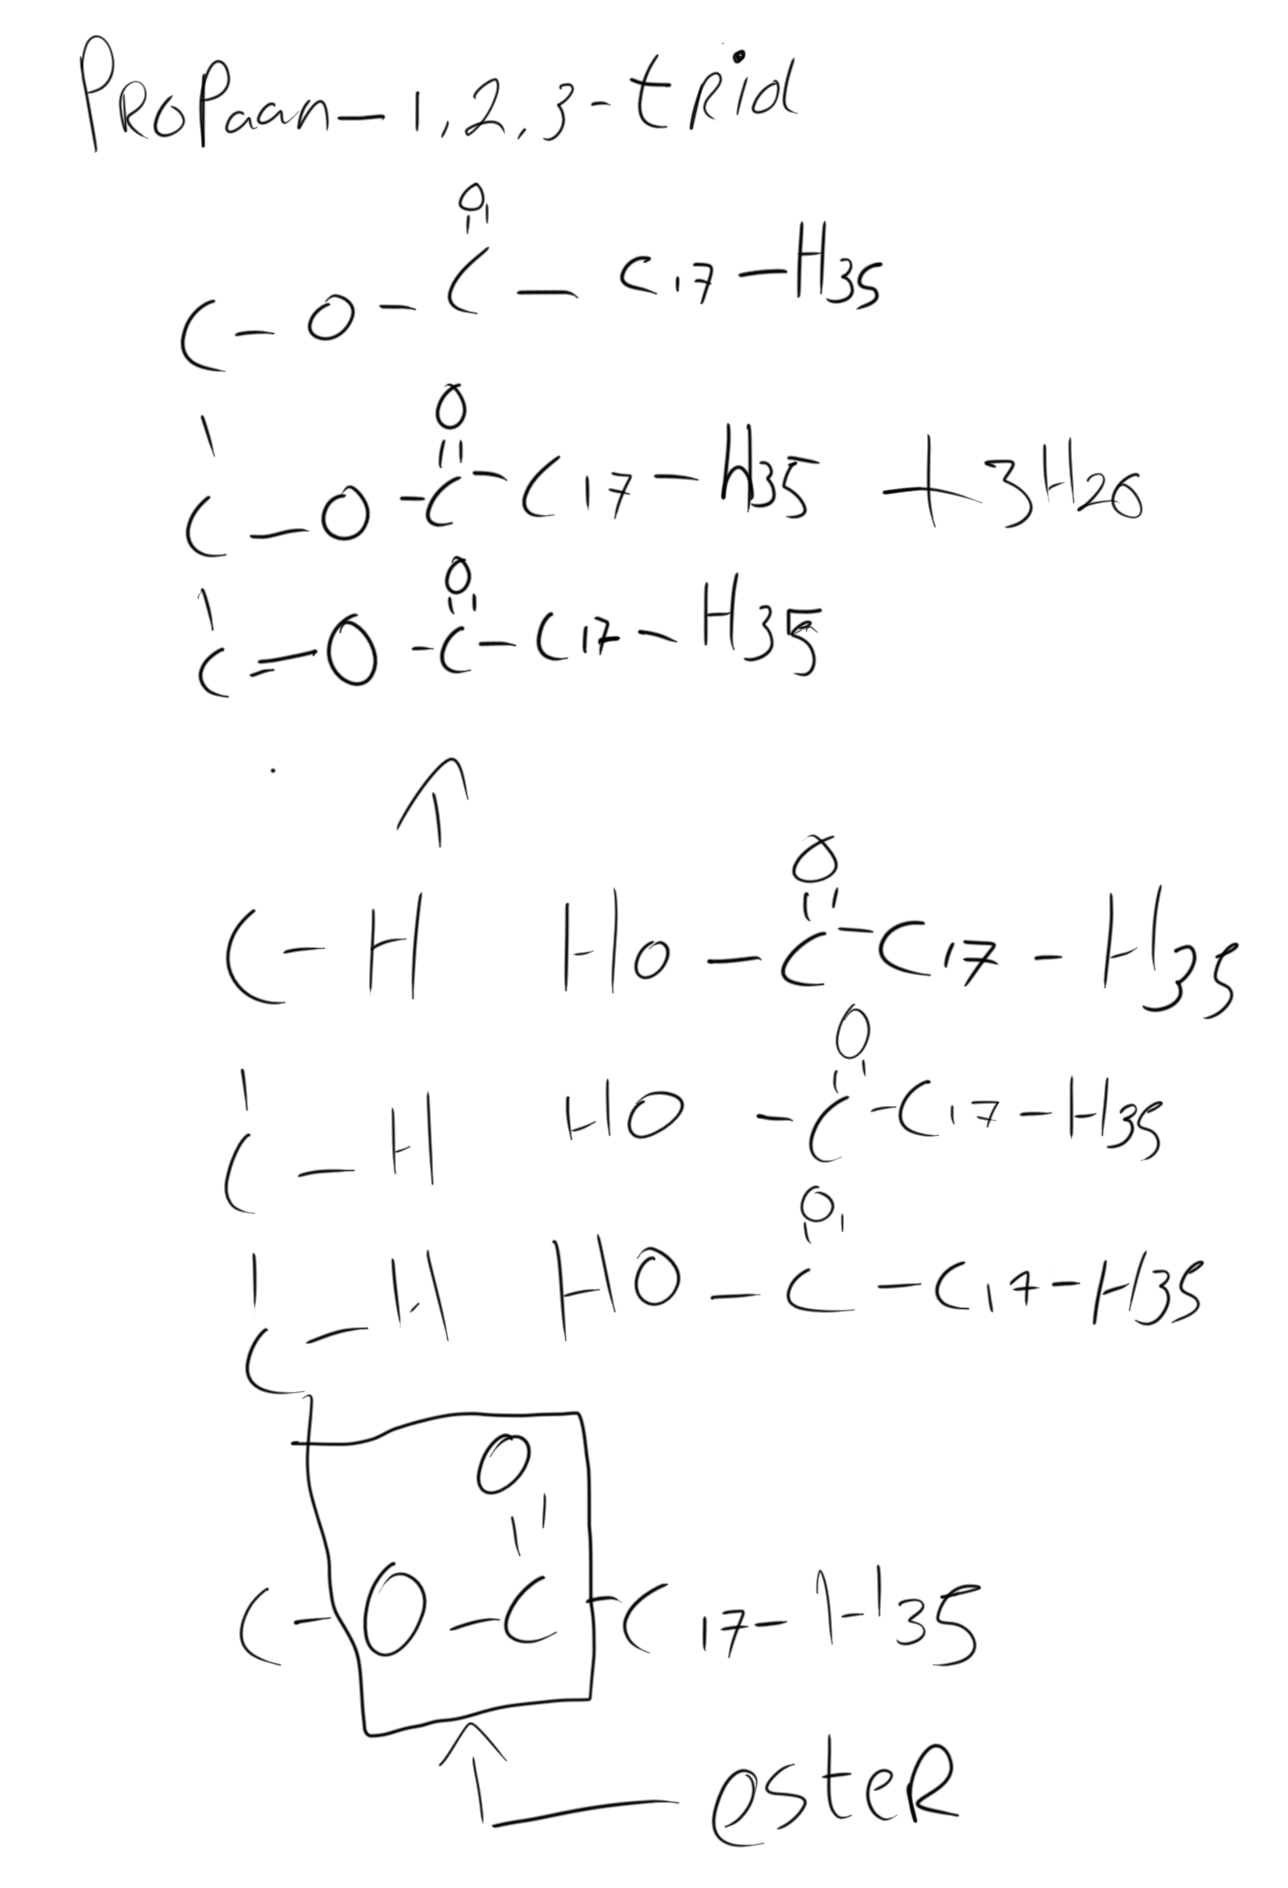 PROPaan-1,2,3-tRiol
O
C-O-C-C17-H35
O
C-O-C-C17-H35 +3H2O
O
C-O-C-C17-H35
O
C-H HO-C-C17-H35
O
C-H HO-C-C17-H35
O
C-H HO-C-C17-H35
O
C-O-C-C17-H35
esteR